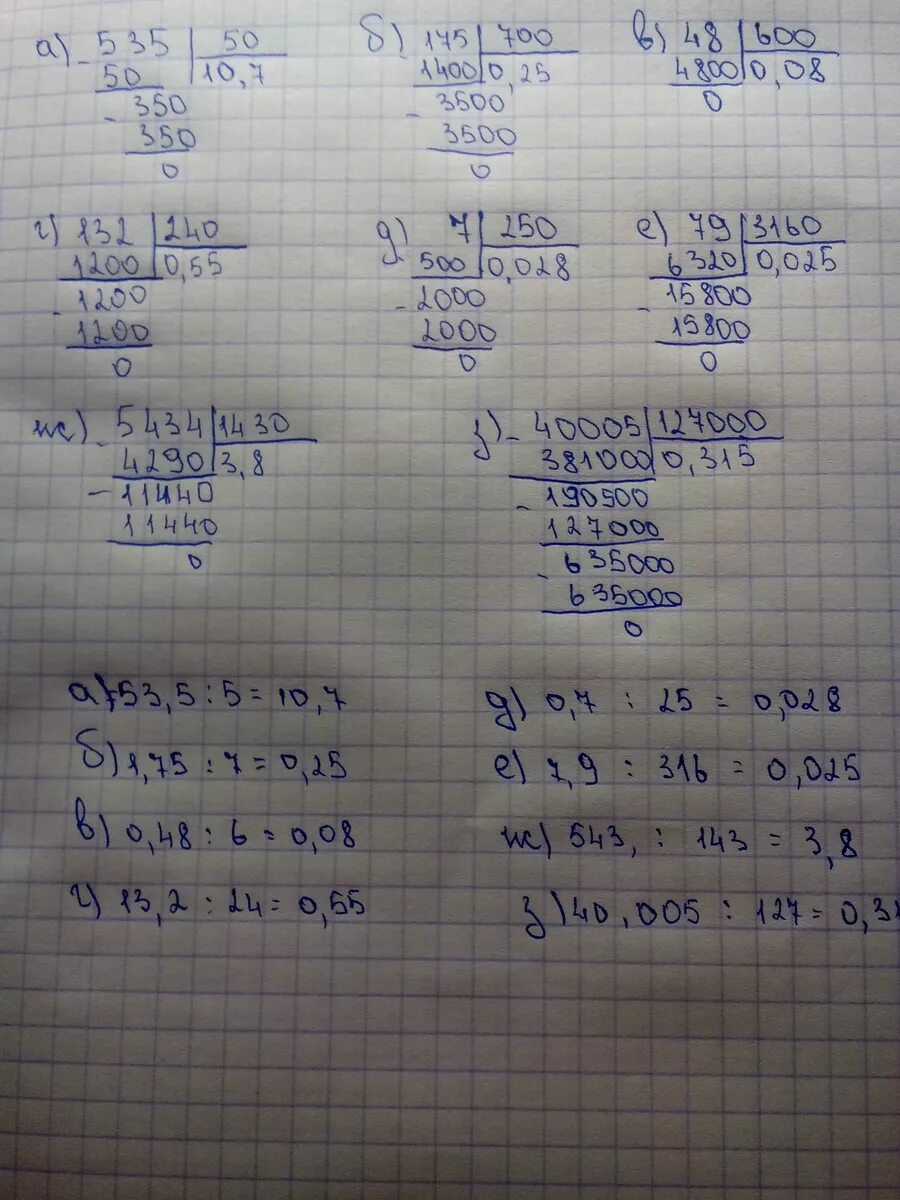 а) - 535 | 50
50 10,7
- 350
350
0
б) - 175 | 700
1400 0,25
- 3500
3500
0
в) 48 | 600
4800 0,08
0
г) 132 | 240
1200 0,55
- 1200
1200
0
д) 7 | 250
500 0,028
- 2000
2000
0
е) 79 | 3160
6320 0,025
- 15800
15800
0
ж) - 5434 | 1430
4290 3,8
- 11440
11440
0
з) - 40005 | 127000
381000 0,315
- 190500
127000
- 635000
635000
0
а) 53,5 : 5 = 10,7
б) 1,75 : 7 = 0,25
в) 0,48 : 6 = 0,08
г) 13,2 : 24 = 0,55
д) 0,7 : 25 = 0,028
е) 7,9 : 316 = 0,025
ж) 543, : 143 = 3,8
з) 40,005 : 127 = 0,31